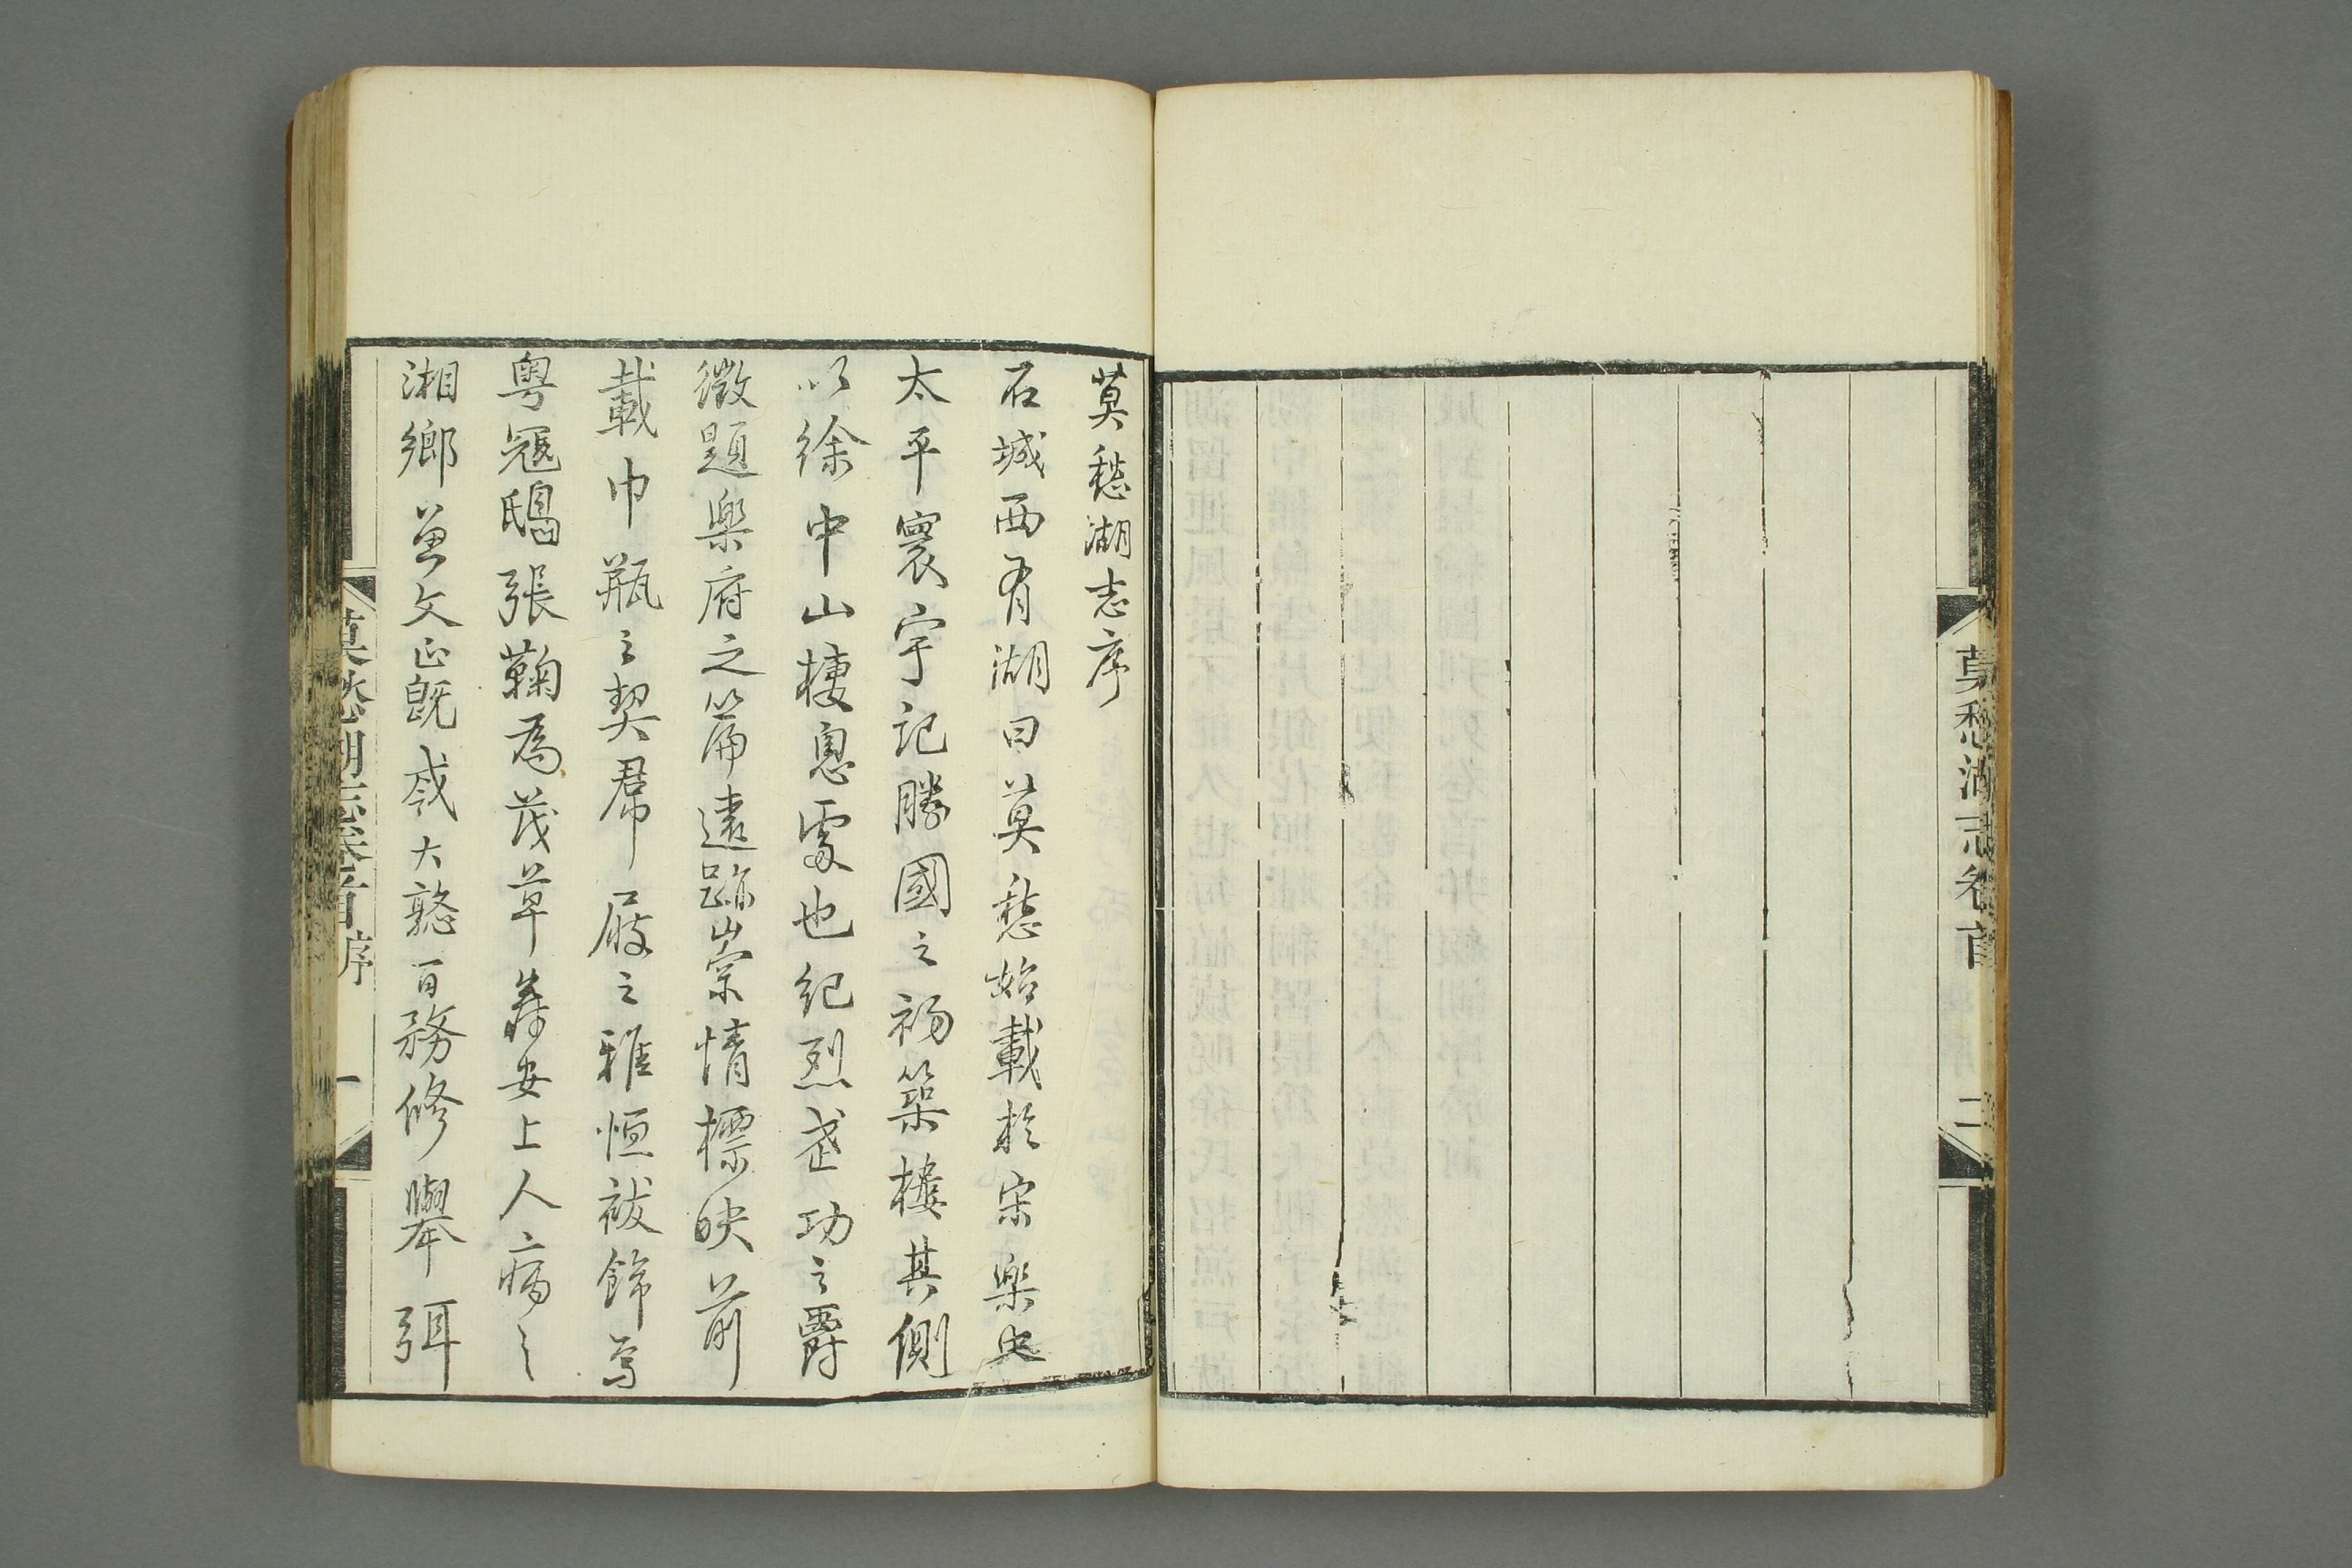 莫愁湖志卷首
二
莫愁湖志序
石城西有湖曰莫愁始載於宋樂史
太平寰宇記勝國之初築樓其側
以徐中山棲息處也紀烈武功之爵
徵題樂府之篇遠跡崇情標映前
載巾瓶之契屏屐之雅恒祓飾焉
粵寇鴟張鞠為茂草壽安上人病之
湘鄉曾文正既戡大憝百務修舉弭
莫愁湖志卷首序
一